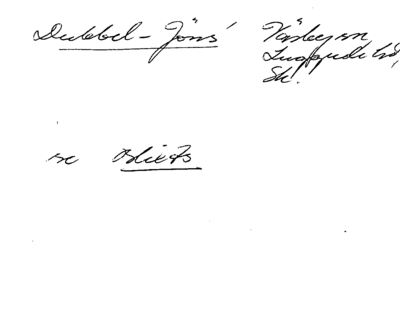 Dubbel-Jöns' Väsbyn,
Luggude hd,
Sk.
se Bliets